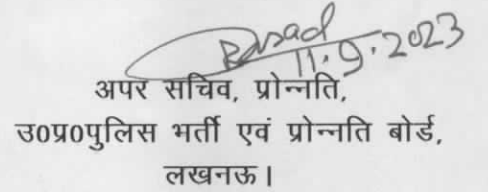 11.9.2023
अपर सचिव, प्रोन्नति,
उ0प्र0पुलिस भर्ती एवं प्रोन्नति बोर्ड,
लखनऊ।